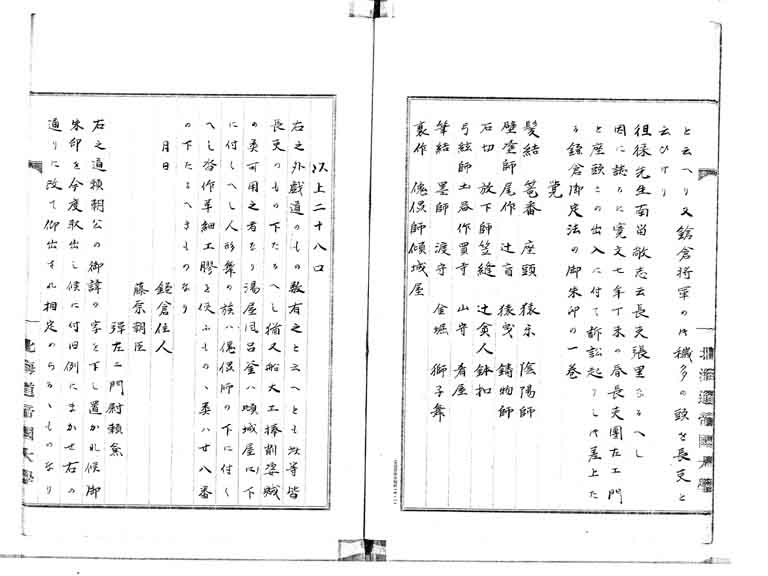 と云へり又鎌倉将軍の時穢多の頭を長吏と
云ひけり
徂徠先生南留別志云長吏張里なるへし
因に談るに寛文七年丁未の春長吏團左エ門
と座頭との出入に付て訴訟起りし時差上た
る鎌倉御定法の御朱印の一巻
覚
髪結 筆番 座頭 猿楽 陰陽師
壁塗師 尾作 辻盲 猿曳 鋳物師
石切 放下師 笠縫 辻貪人 鉢扣
弓絃師 土器作 買寺 山守 看屋
筆結 墨師 渡守 金堀 獅子舞
裏作 傀儡師 傾城屋
以上二十八口
右之外戯道のもの数有之と云へとも此等皆
長吏のもの下たるへし猶又船大工棒削盗賊
の類可用之者なり湯屋風呂釜ハ傾城屋に下
に付しへし人形舞の族ハ傀儡師の下に付く
へし沓作革細工膠を使ふものゝ類ハ廿八番
の下たるへきものなり
月日
鎌倉住人
藤原朝臣
弾左エ門尉頼兼
右之通頼朝公の御諱の字を下し置かれ候御
朱印を今度取出し候に付旧例にまかせ右の
通りに改て御出され相定のらるゝものなり
北海道帝國大學
北海道帝國大學